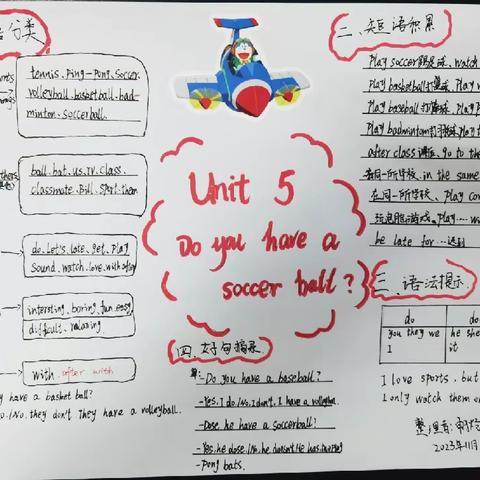 分类
tennis. Ping-Pong. Soccer.
volleyball. basketball. bad-
minton. Soccerball.
thers
ball. hat. us. TV. class.
classmate. Bill. Sport. them
do. Let's. late. get. play
Sound. watch. love. with after
intersting. boring. fun. easy.
difficult. relaxing
with after with
have a basket ball?
No. they don't They have a volleyball.
Unit 5
Do you have a
soccer ball?
二、短语积累
Play soccer踢足球、watch
Play basketball打篮球、Play
Play baseball打棒球、Play
Play badmintom打羽毛球、Play
after class课后、go to the
同一所学校、in the same
在同一所学校、Play com
玩电脑游戏、Play
be late for …迟到
三、语法提示
do do
you they we he she
I it
I love sports, but
I only watch them on
整理者:
2023年11月
四、好句摘录
-Do you have a baseball?
-Yes, I do. /No, I don't, I have a volleyball.
-Dose he have a soccerball?
-Yes, he dose. /No, he doesn't He has two Ping
-Pong bats.